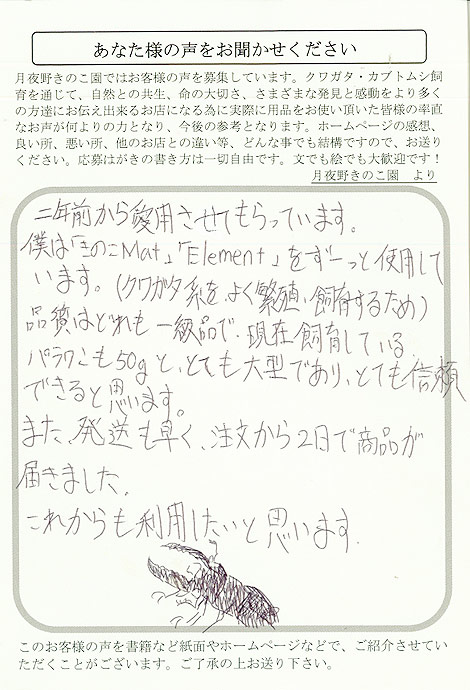 あなた様の声をお聞かせください
月夜野きのこ園ではお客様の声を募集しています。クワガタ・カブトムシ飼
育を通じて、自然との共生、命の大切さ、さまざまな発見と感動をより多く
の方達にお伝え出来るお店になる為に実際に用品をお使い頂いた皆様の率直
なお声が何よりの力となり、今後の参考となります。ホームページの感想、
良い所、悪い所、他のお店との違い等、どんな事でも結構ですので、お送り
ください。応募はがきの書き方は一切自由です。文でも絵でも大歓迎です！
月夜野きのこ園　より
二年前から愛用させてもらっています。
僕は「きのこMat」「Element」をずーっと使用して
います。(クワガタ系をよく繁殖、飼育するため)
品質はどれも一級品で、現在飼育している
パラワンも50gと、とても大型であり、とても信頼
できると思います。
また、発送も早く、注文から2日で商品が
届きました。
これからも利用したいと思います.
このお客様の声を書籍など紙面やホームページなどで、ご紹介させてい
ただくことがございます。ご了承の上お送り下さい。